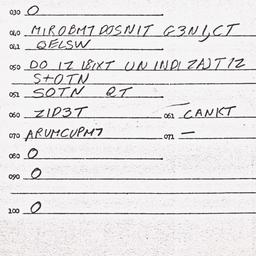 030 O
010 MIROBMT DOSNIT G3N1,CT
011 QELSW
050 DO IZ 18IXT UN INDIZAJT/Z
S+OTN
051 SOTN QT
060 ZIP3T 061 CANKT
070 ARUMCUPM7 071 —
080 O
090 O
100 O